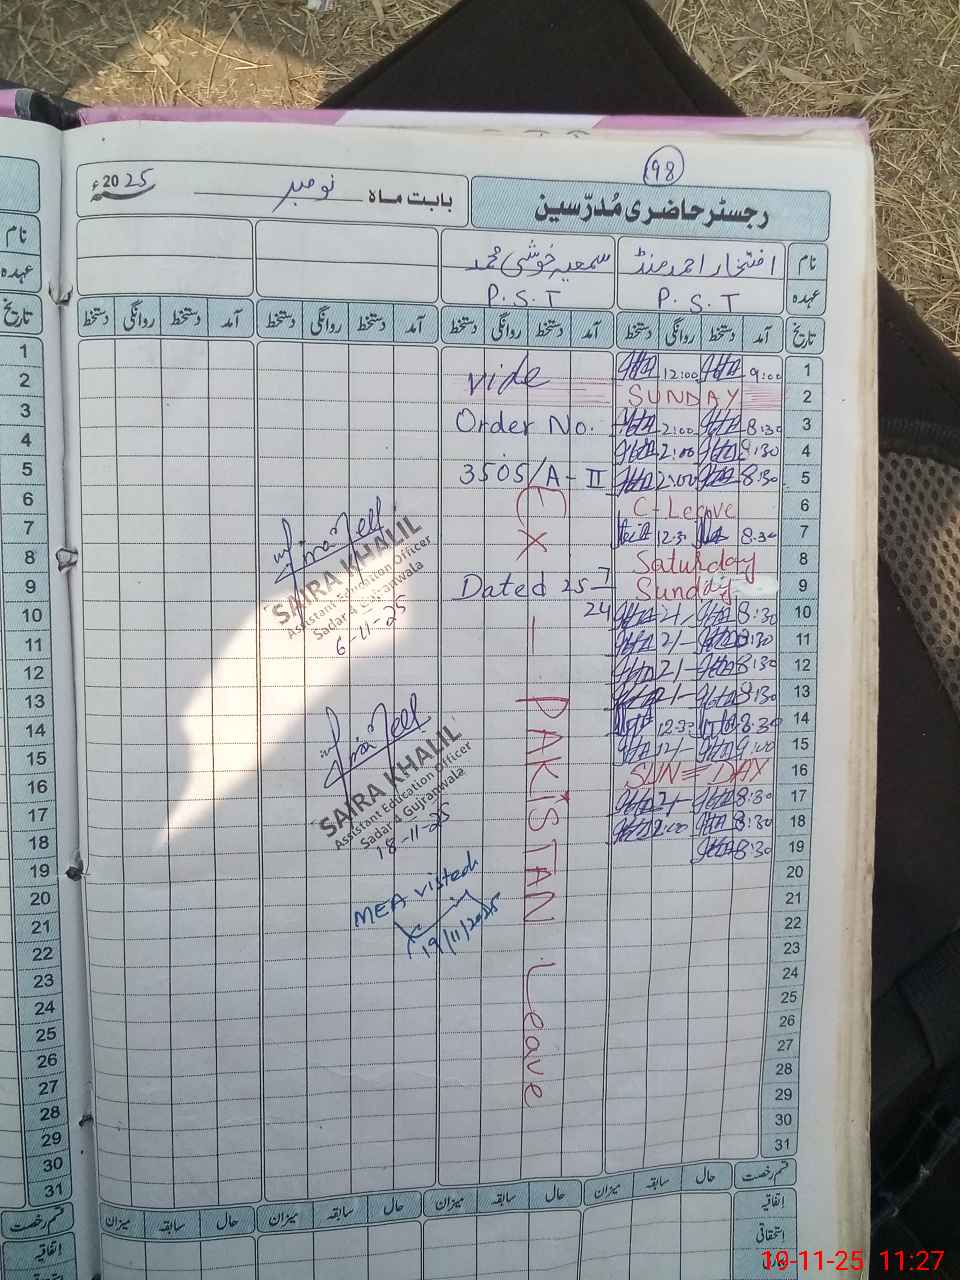 98
رجسٹر حاضری مُدرّسین
بابت ماہ نومبر 2025ء
نام افتخار احمد منڈ سمعیہ خوشی محمد
عہدہ P.S.T P.S.T
تاریخ آمد دستخط روانگی دستخط آمد دستخط روانگی دستخط آمد دستخط روانگی دستخط آمد دستخط روانگی دستخط
1 9:00 12:00
2 SUNDAY
3 8:30 2:00
4 8:30 2:00
5 8:30 2:00
6 C-Leave
7 8:30 12:30
8 Saturday
9 Sunday
10 8:30 2/-
11 8:30 2/-
12 8:30 2/-
13 8:30 2/-
14 8:30 12:30
15 9:00 12/-
16 SUN=DAY
17 8:30 2/-
18 8:30 2:00
19 8:30
20
21
22
23
24
25
26
27
28
29
30
31
vide
Order No.
3505/A-II
Dated 25-7
24
EX - PAKISTAN Leave
SAIRA KHALIL
Assistant Education Officer
Sadar 4 Gujranwala
6-11-25
SAIRA KHALIL
Assistant Education Officer
Sadar 4 Gujranwala
18-11-25
MEA visted
19/11/2025
قسم رخصت حال سابقہ میزان حال سابقہ میزان حال سابقہ میزان حال سابقہ میزان
اتفاقیہ
استحقاقی
نام
عہدہ
تاریخ
1
2
3
4
5
6
7
8
9
10
11
12
13
14
15
16
17
18
19
20
21
22
23
24
25
26
27
28
29
30
31
قسم رخصت
اتفاقیہ
19-11-25 11:27